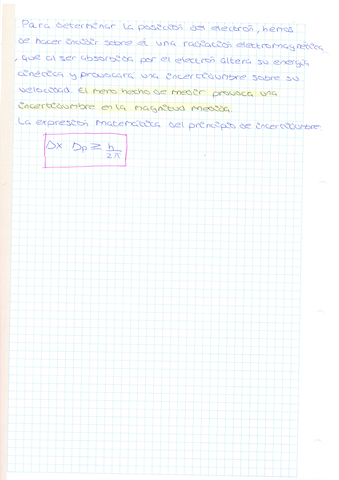 Para determinar la posición del electrón, hemos
de hacer incidir sobre él una radiación electromagnética
, que al ser absorbida por el electrón altera su energía
cinética y provocará una incertidumbre sobre su
velocidad. El mero hecho de medir provoca una
incertidumbre en la magnitud medida.
La expresión matemática del principio de incertidumbre
Δx Dp ≥ h/2π